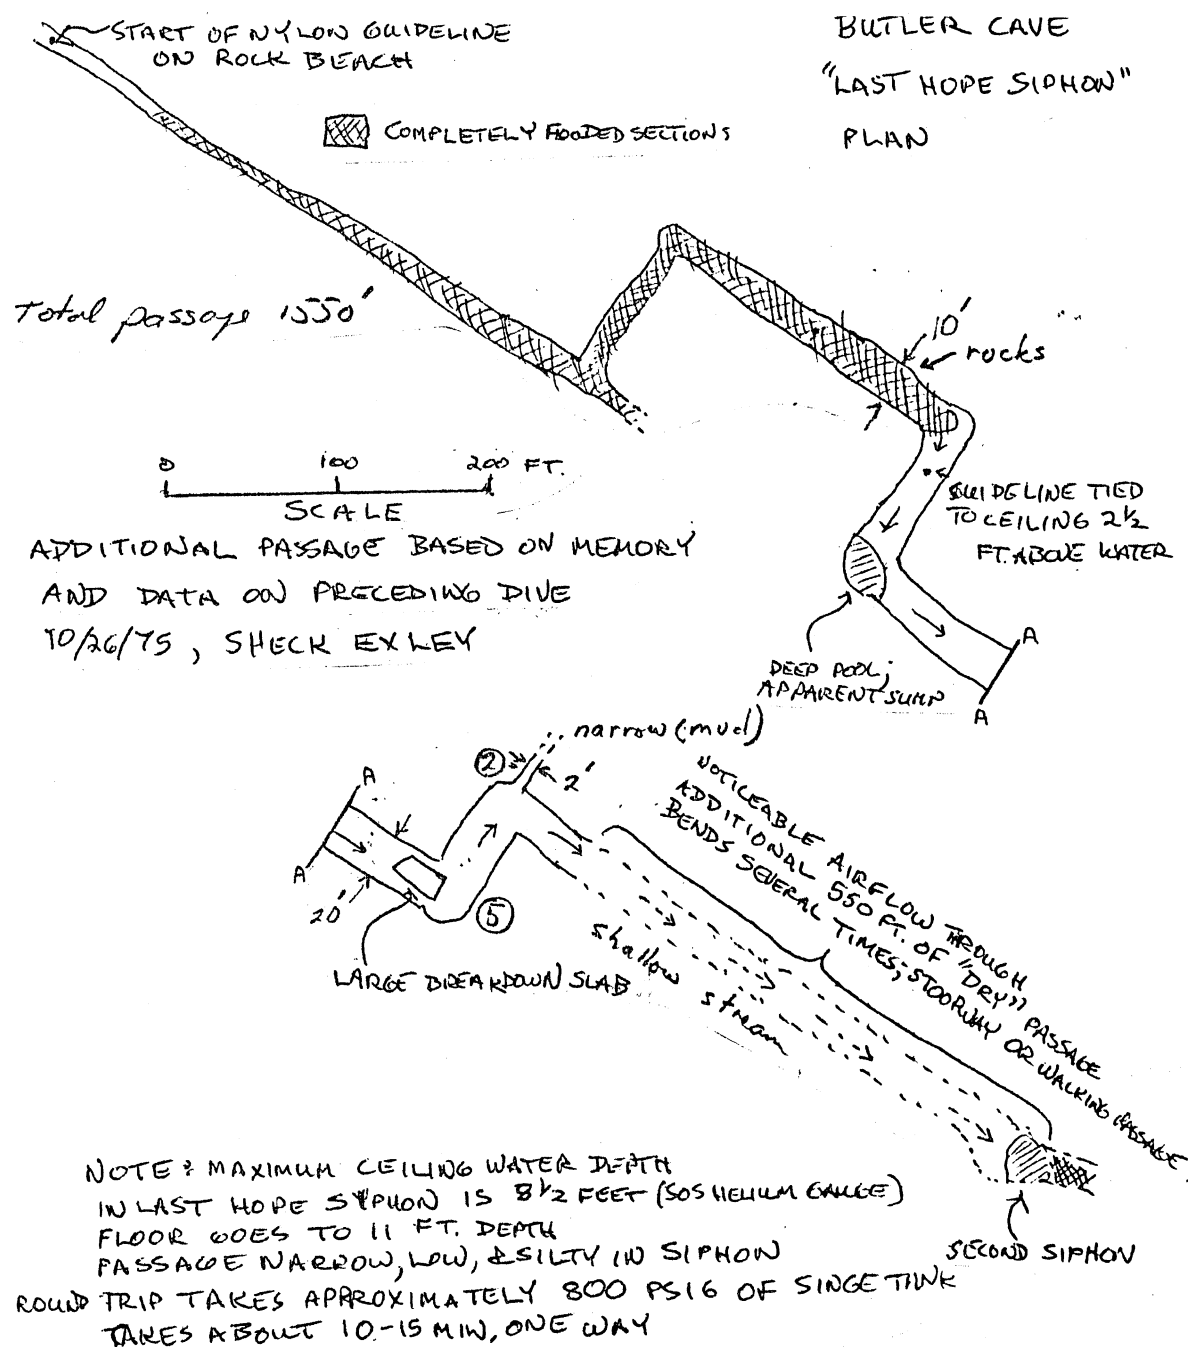 START OF NYLON GUIDELINE
ON ROCK BEACH
BUTLER CAVE
"LAST HOPE SIPHON"
PLAN
COMPLETELY FLOODED SECTIONS
Total passage 1550'
10'
rocks
0 100 200 FT.
SCALE
GUIDELINE TIED
TO CEILING 2 1/2
FT. ABOVE WATER
ADDITIONAL PASSAGE BASED ON MEMORY
AND DATA ON PRECEDING DIVE
10/26/75, SHECK EXLEY
DEEP POOL;
APPARENT SUMP
A
A
narrow (mud)
2
2'
A
A
20'
5
LARGE BREAKDOWN SLAB
shallow stream
NOTICEABLE AIRFLOW THROUGH
ADDITIONAL 550 FT. OF "DRY" PASSAGE
BENDS SEVERAL TIMES; STOOPWAY OR WALKING PASSAGE
SECOND SIPHON
NOTE: MAXIMUM CEILING WATER DEPTH
IN LAST HOPE SYPHON IS 8 1/2 FEET (SOS HELIUM GAUGE)
FLOOR GOES TO 11 FT. DEPTH
PASSAGE NARROW, LOW, & SILTY IN SIPHON
ROUND TRIP TAKES APPROXIMATELY 800 PSIG OF SINGE TANK
TAKES ABOUT 10-15 MIN, ONE WAY